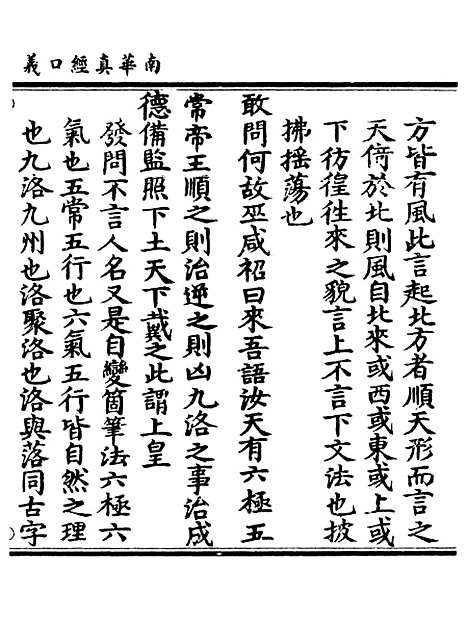 南華真經口義
方皆有風此言起北方者順天形而言之
天倚於北則風自北來或西或東或上或
下彷徨徃來之貌言上不言下文法也披
拂揺蕩也
敢問何故巫咸祒曰來吾語汝天有六極五
常帝王順之則治逆之則凶九洛之事治成
德備監照下土天下戴之此謂上皇
發問不言人名又是自變箇筆法六極六
氣也五常五行也六氣五行皆自然之理
也九洛九州也洛聚洛也洛與落同古字